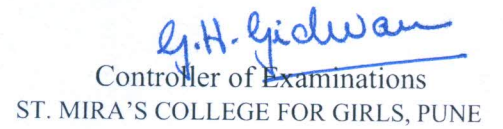 G.H. Gidwani
Controller of Examinations
ST. MIRA'S COLLEGE FOR GIRLS, PUNE